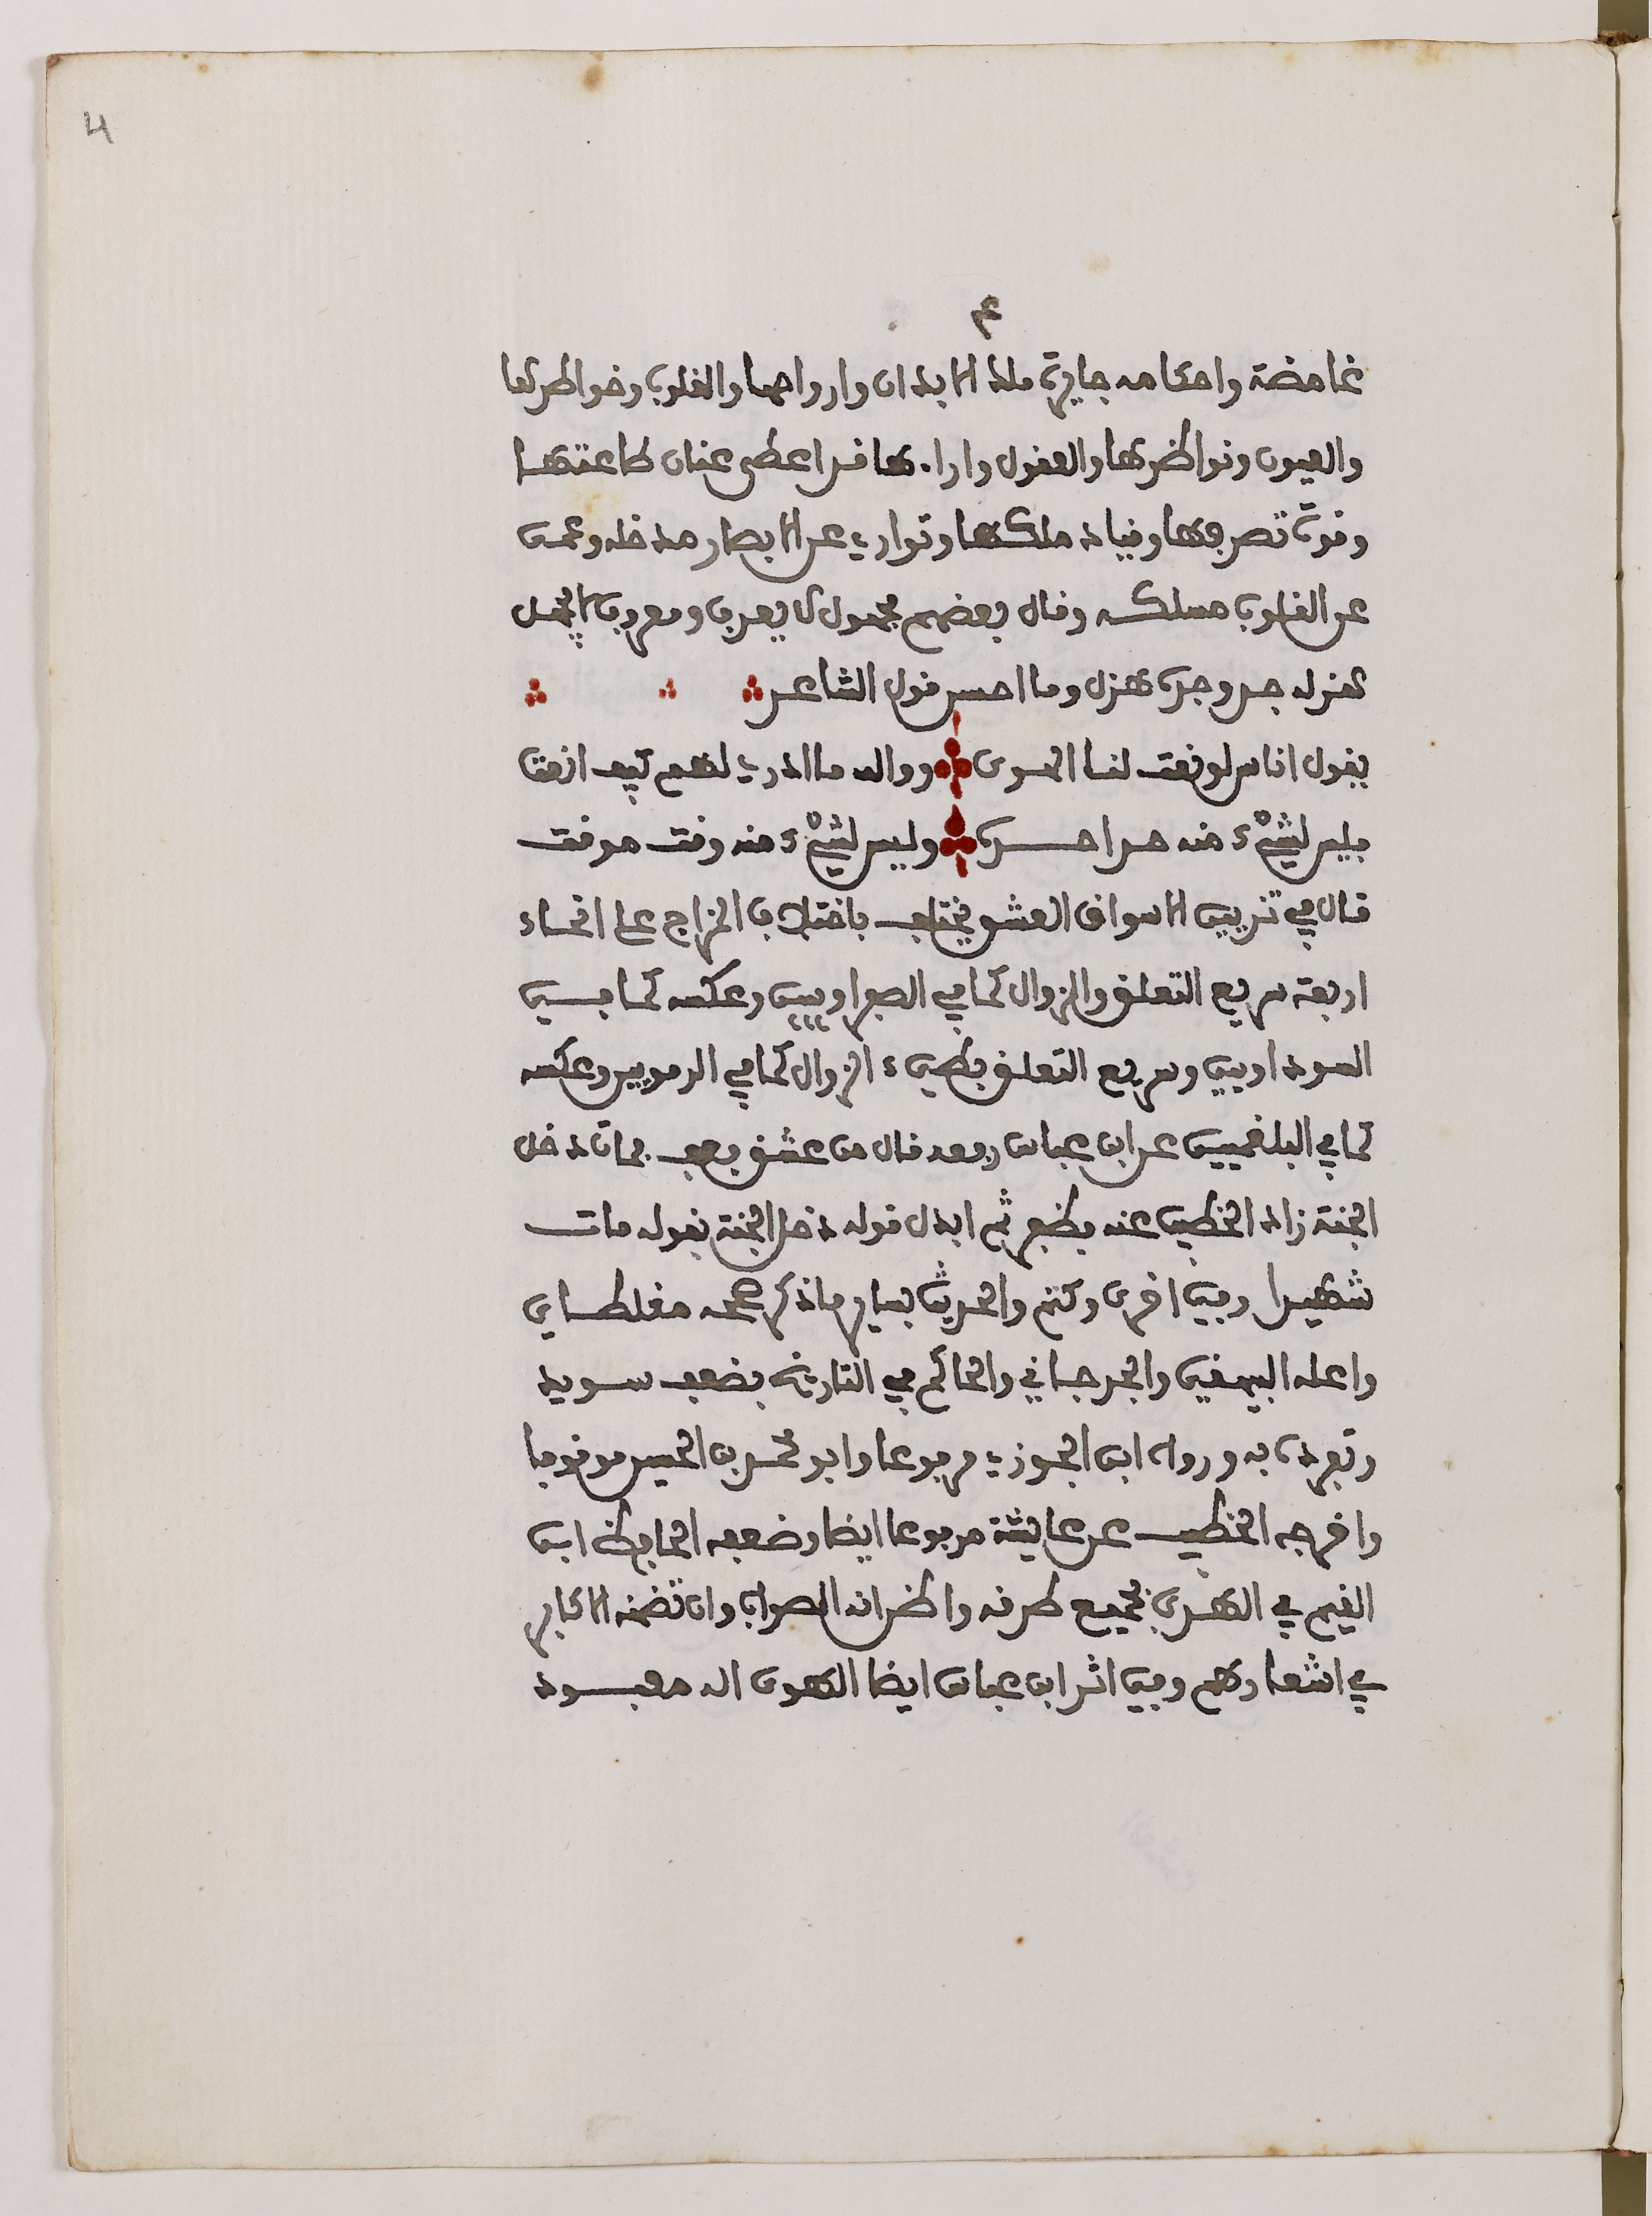 4
٤
غامضة واحكامه جايرة ملك الابدان وارواحها والقلوب وخواطرها
والعيون ونواظرها والعقول واراءها قد اعطى عنان طاعتها
وقوة تصرفها وقياد ملكها وتوارى عن الابصار مدخله وعمى
عن القلوب مسلكه وقال بعضهم مجهول لا يعرف ومعروف لا يجهل
هزله جد وجده هزل وما احسن قول الشاعر
يقول اناس لو نعت لنا الهوى ووالله ما ادري لهم كيف انعت
فليس لشيْء منه حد احده وليس لشيْء منه وقت موقت
قال في تزيين الاسواق العشق يختلف باختلاف المزاج على انحاء
اربعة سريع التعلق والزوال كما في الصفراويين وعكسه كما في
السوداويين وسريع التعلق بطيء الزوال كما في الدمويين وعكسه
كما في البلغميين عن ابن عباس رفعه قال من عشق فعف فمات دخل
الجنة زاد الخطيب عنه فظفر ثم ابدل قوله دخل الجنة بقوله مات
شهيدا وفي اخرى وكتم والحديث بساير ما ذكر صححه مغلطاي
واعله البيهقي والجرجاني والحاكم في التاريخ بضعف سويد
وتفرده به ورواه ابن الجوزي مرفوعا وابو محمد بن الحسين موقوفا
واخرجه الخطيب عن عايشة مرفوعا ايضا وضعفه الحافظ ابن
القيم في الهدى بجميع طرقه واظن انه الصواب وان تضمنه الاكابر
في اشعارهم وفي اثر ابن عباس ايضا الهوى اله معبود